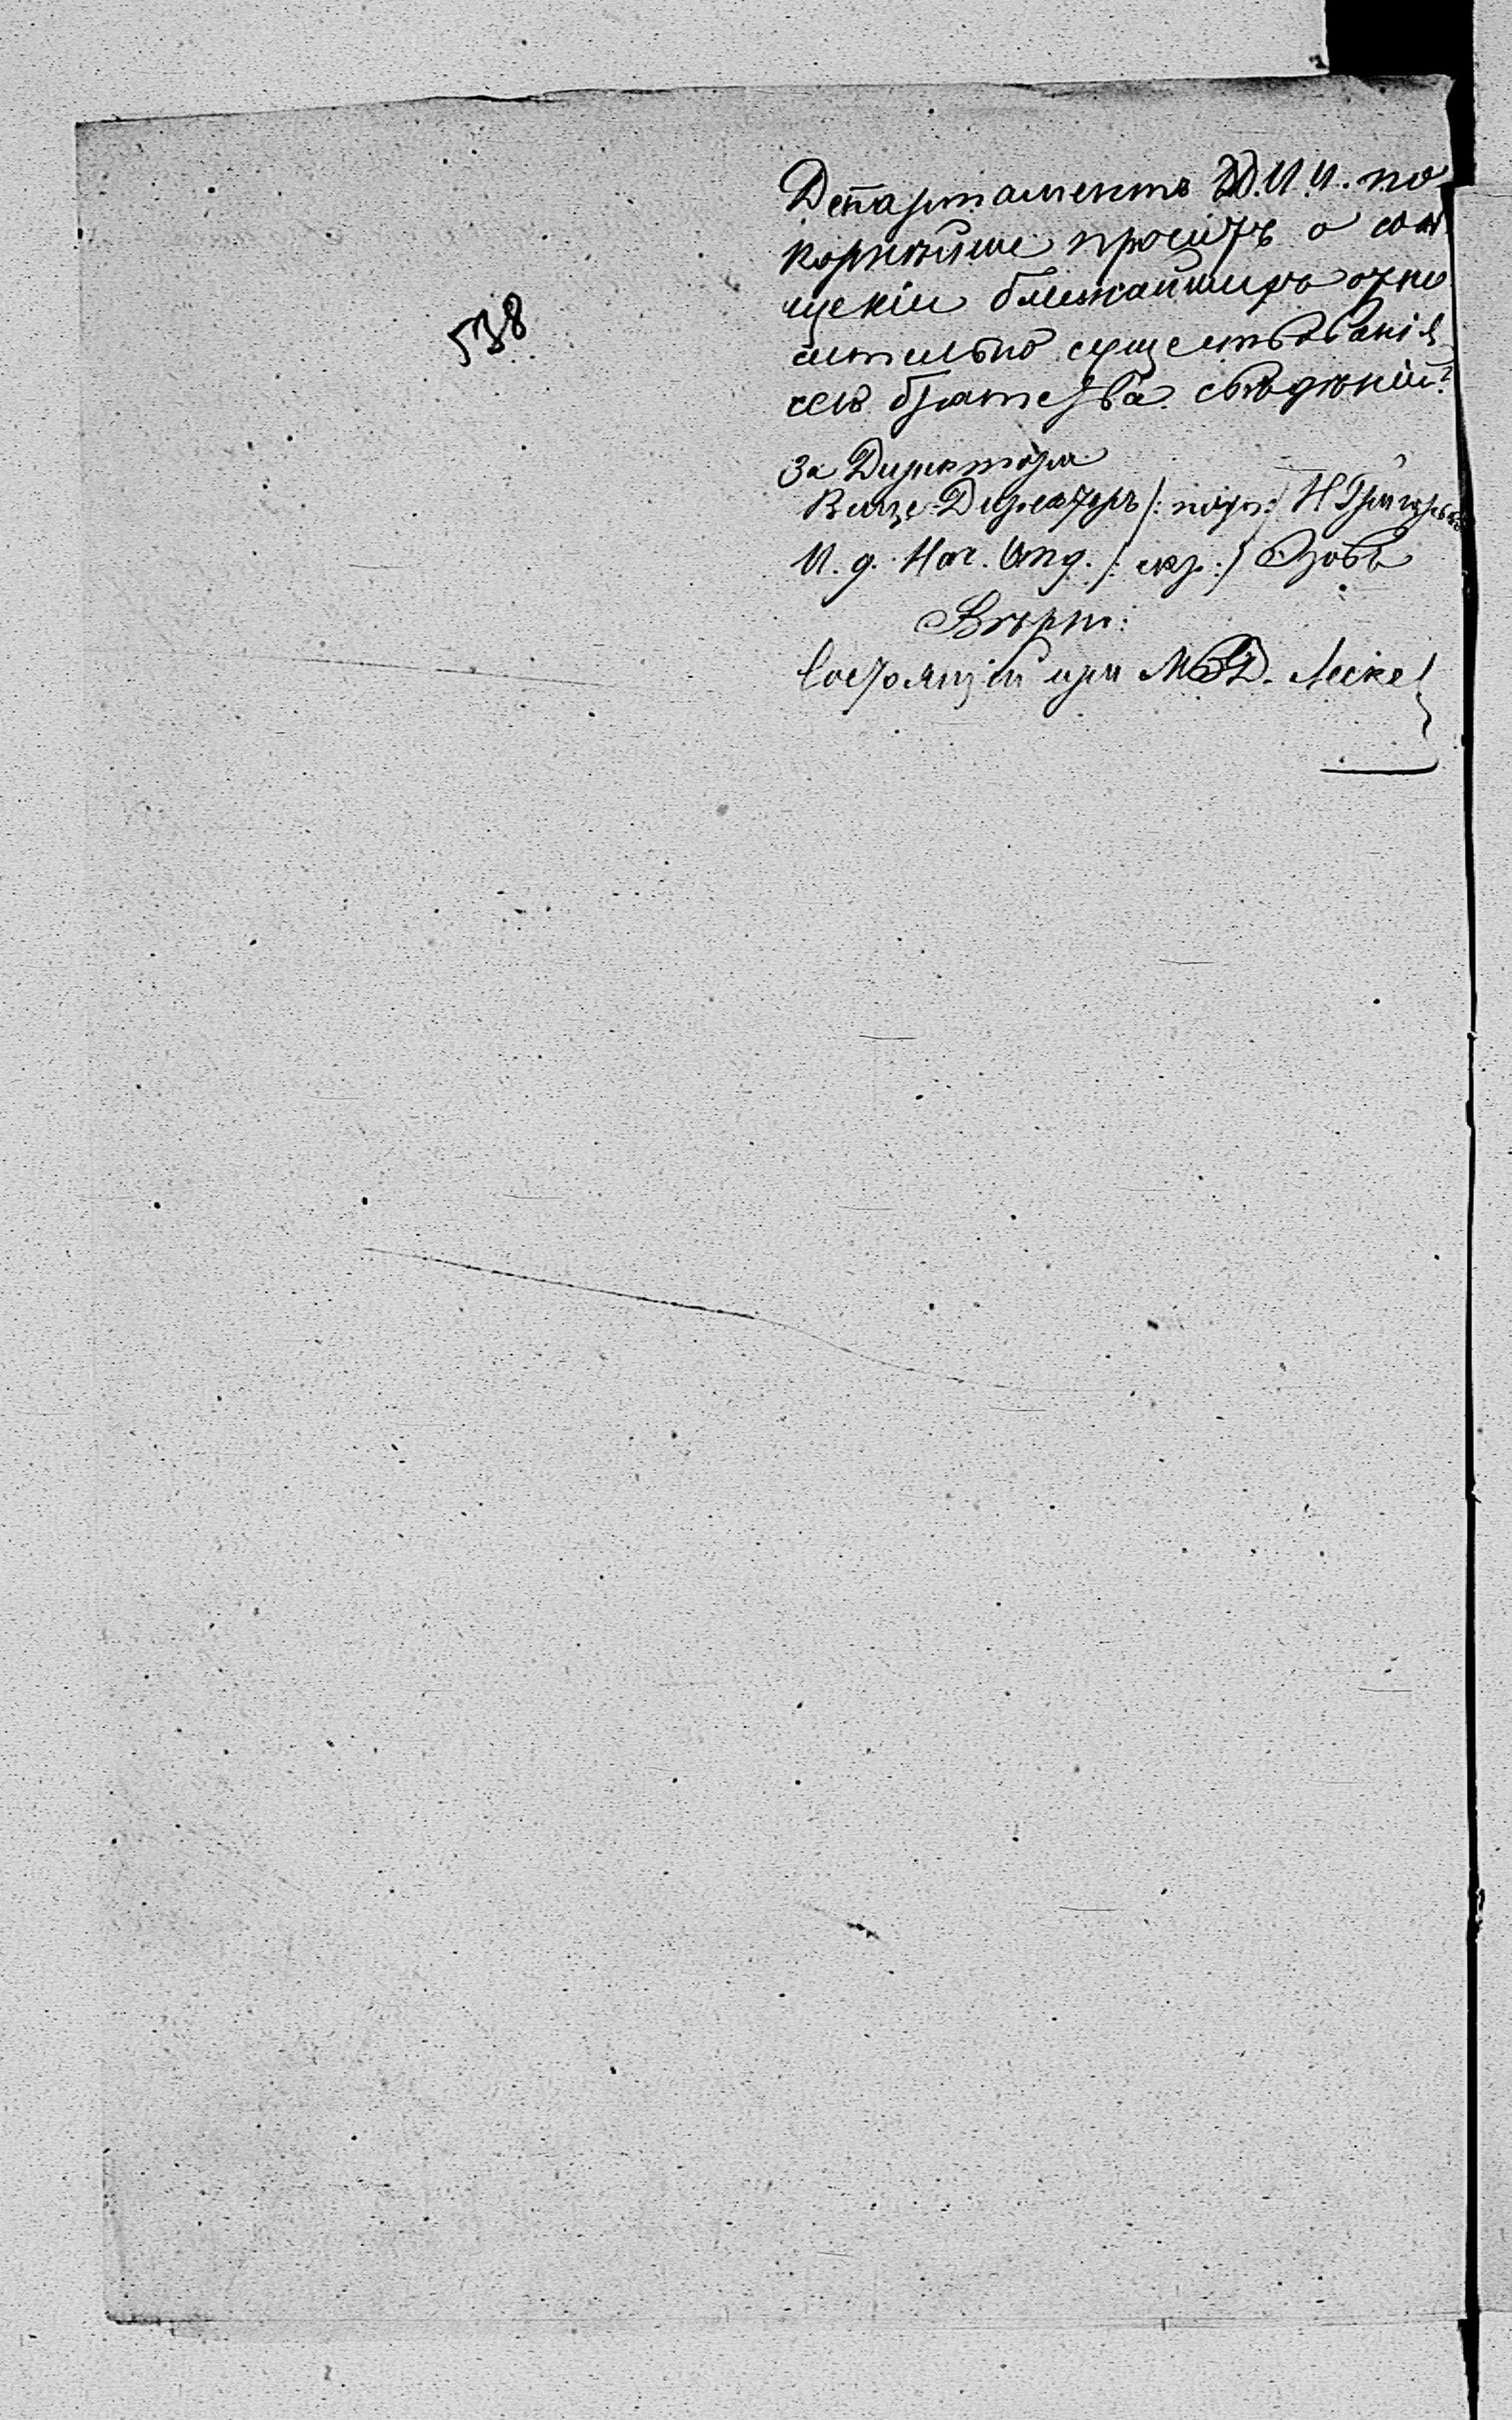 538
Департаментъ Д.Д.И.И. по-
корнѣйше проситъ о сооб-
щеніи ближайшихъ отно-
сительно существованія
сего братства свѣдѣній.
За Директора
Вице-Директоръ /: подп:/ Н Григорьевъ
И. д. Нач. Отд. /: скр:/
Вѣрно:
Состоящій при МВД.